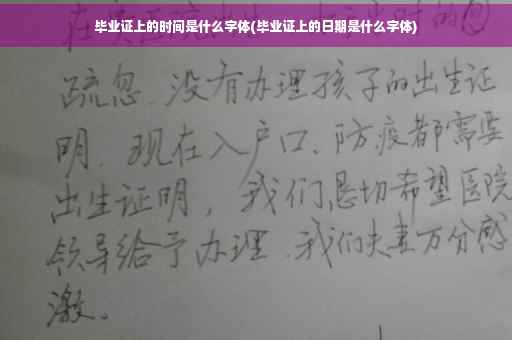 毕业证上的时间是什么字体(毕业证上的日期是什么字体)
疏忽、没有办理孩子的出生证
明、现在入户口、防疫都需要
出生证明，我们恳切希望医院
领导给予办理、我们夫妻万分感
激。